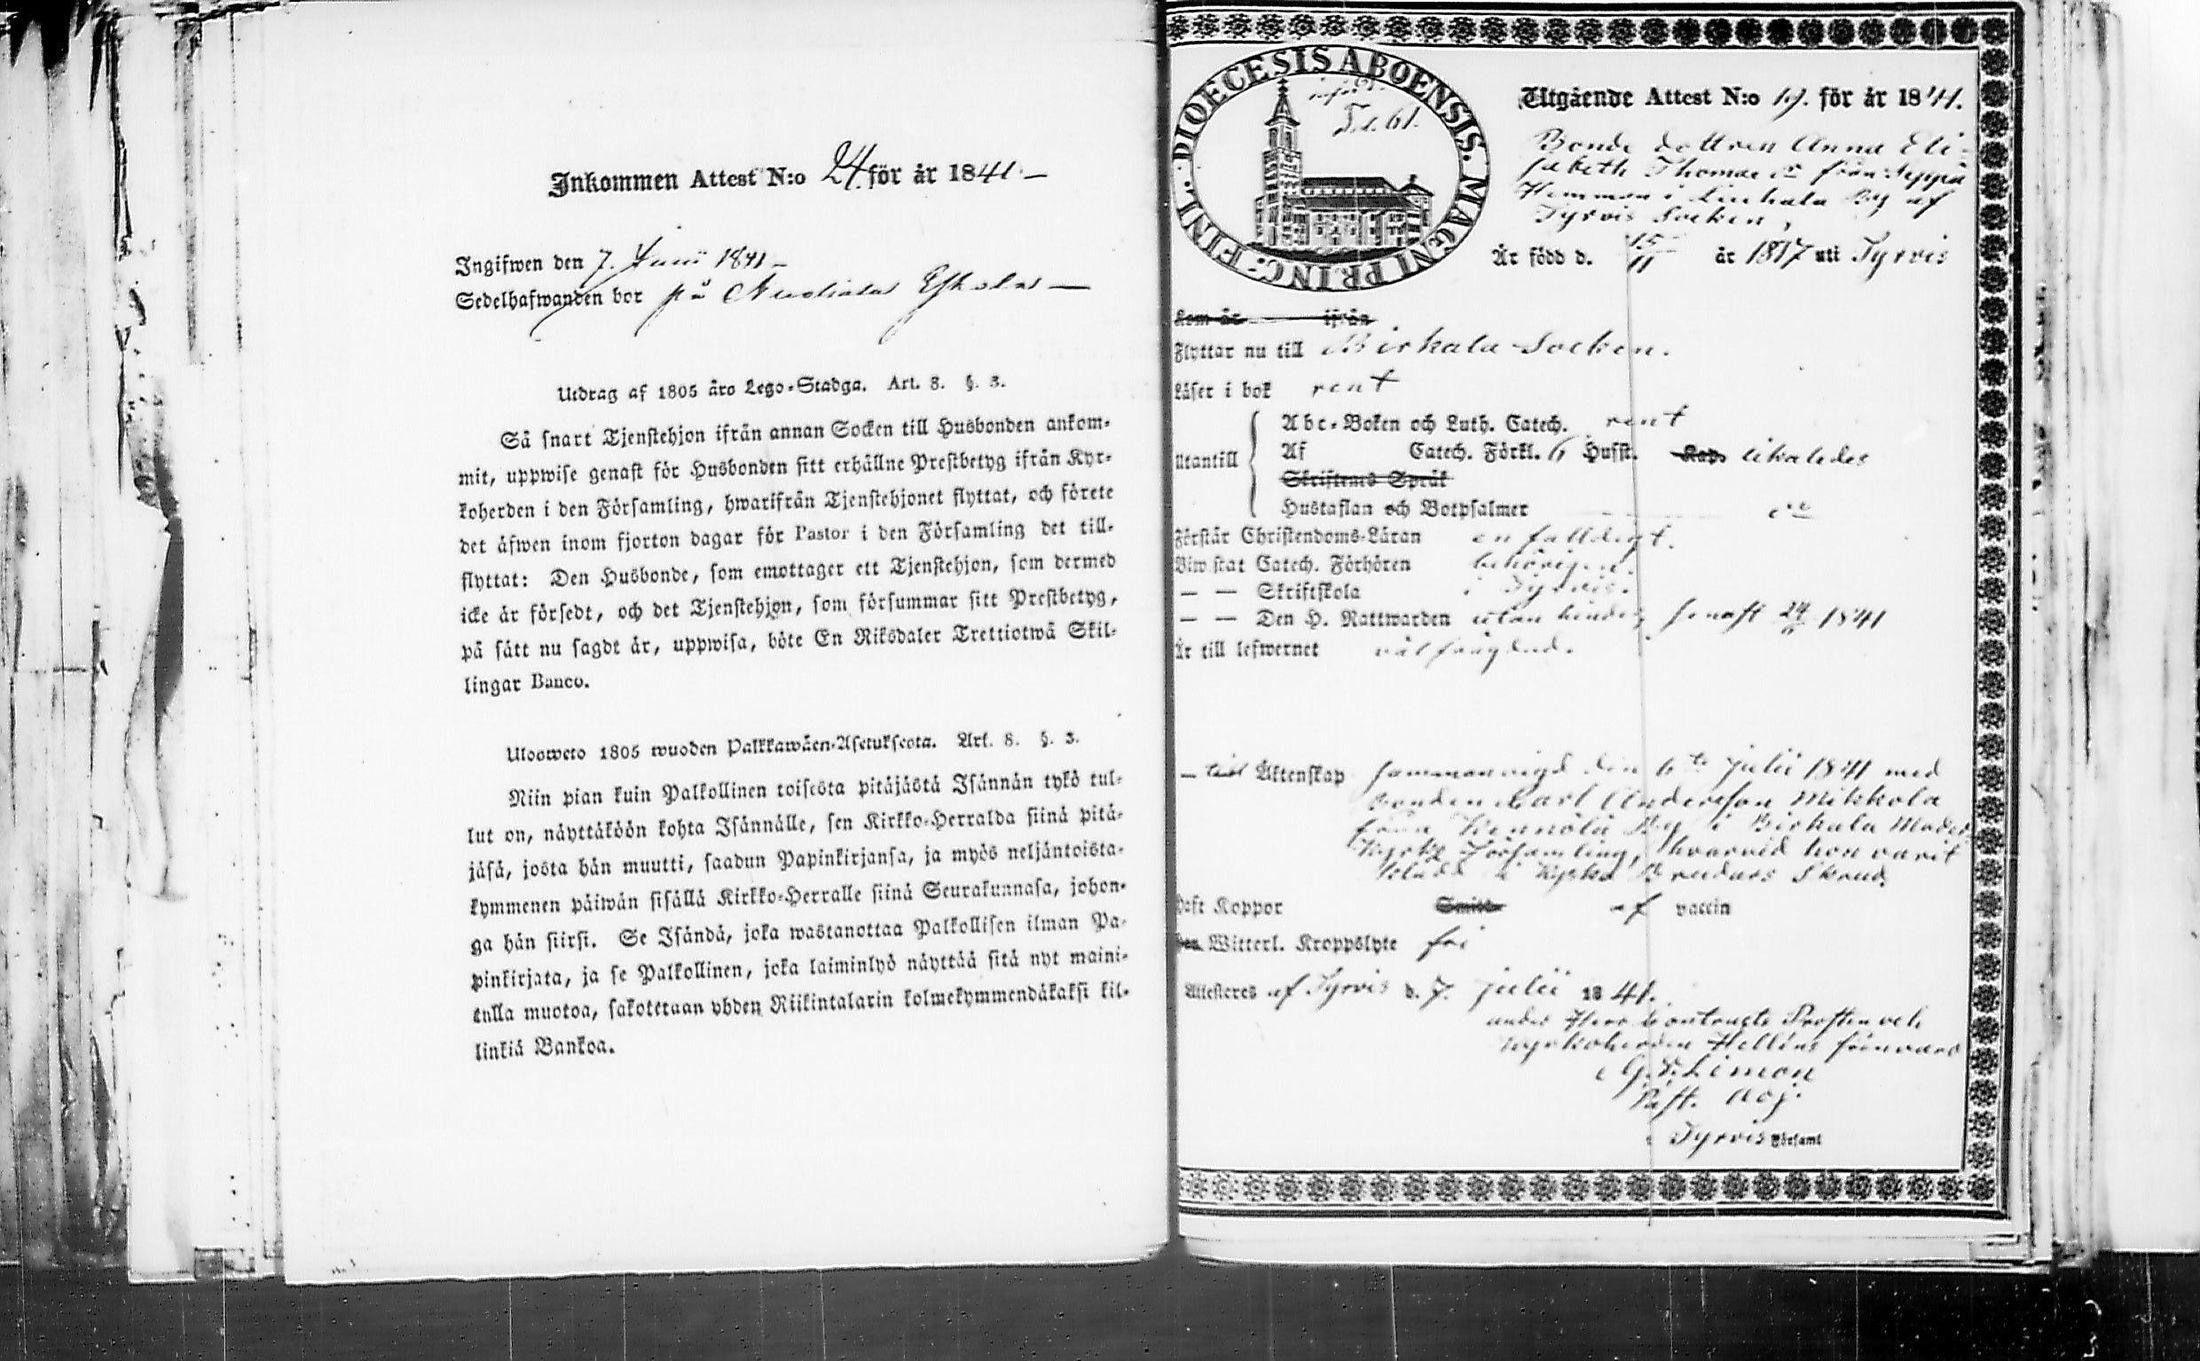 Inkommen Attest N:o 24. för år 1841.
Ingifwen den 7. Junii 1841
Sedelhafwanden bor på
Utdrag af 1805 års Lego-Stadga. Art. 8. §. 3.
Så snart Tjenstehjon ifrån annan Socken till Husbonden ankom-
mit, uppwise genast för Husbonden sitt erhållne Prestbetyg ifrån Kyr-
koherden i den Församling, hwarifrån Tjenstehjonet flyttat, och förete
det äfwen inom fjorton dagar för Pastor i den Församling det till-
flyttat: Den Husbonde, som emottager ett Tjenstehjon, som dermed
icke är försedt, och det Tjenstehjon, som försummar sitt Prestbetyg,
på sätt nu sagdt är, uppwisa, böte En Riksdaler Trettiotwå Skil-
lingar Banco.
Ulosweto 1805 wuoden Palkkawäen-Asetuksesta. Art. 8. §. 3.
Niin pian kuin Palkollinen toisesta pitäjästä Isännän tykö tul-
lut on, näyttäköön kohta Isännälle, sen Kirkko-Herralda siinä pitä-
jäsä, josta hän muutti, saadun Papinkirjansa, ja myös neljäntoista-
kymmenen päiwän sisällä Kirkko-Herralle siinä Seurakunnasa, johon-
ga hän siirsi. Se Isändä, joka wastanottaa Palkollisen ilman Pa-
pinkirjata, ja se Palkollinen, joka laiminlyö näyttää sitä nyt maini-
tulla muotoa, sakotetaan yhden Riikintalarin kolmekymmendäkaksi kil-
linkiä Bankoa.
DIOECESIS ABOENSIS. MAGNI PRINC. FINL.
T.d. 61.
Utgående Attest N:o 19. för år 1841.
Bonde dottren Anna Eli-
sabeth Thomae dr från Seppä
Hemman i Liuhala By af
Tyrvis Socken,
Är född d. 15/11 år 1817 uti Tyrvis
Kom år ifrån
Flyttar nu till Birkala Socken.
Läser i bok rent
Utantill
Abc-Boken och Luth. Catech. rent
Af Catech. Förkl. 6 Hufst. Kap. likaledes
Skriftens Språk
Hustaflan och Botpsalmer
Förstår Christendoms-Läran enfalldigt.
Biwistat Catech. Förhören behörigen.
— — Skriftskola i Tyrvis.
— — Den H. Nattwarden utan hinder, senast 24/ 1841
Är till lefwernet väl frägdad.
— till Äktenskap sammanvigd den 6te julii 1841 med
bonden Carl Andersson Mikkola
från By i Birkala Moder
Kyrko Församling, hvarvid hon varit
klädd i Kyrko Brudars Skrud.
Haft Koppor Smitto af vaccin
Witterl. Kroppslyte fri
Attesteras af Tyrvis d. 7. julii 1841.
under Herr Contracts Prosten och
Kyrkoherden Helléns frånvaro
G. Limon
Past. Adj.
i Tyrvis Församl